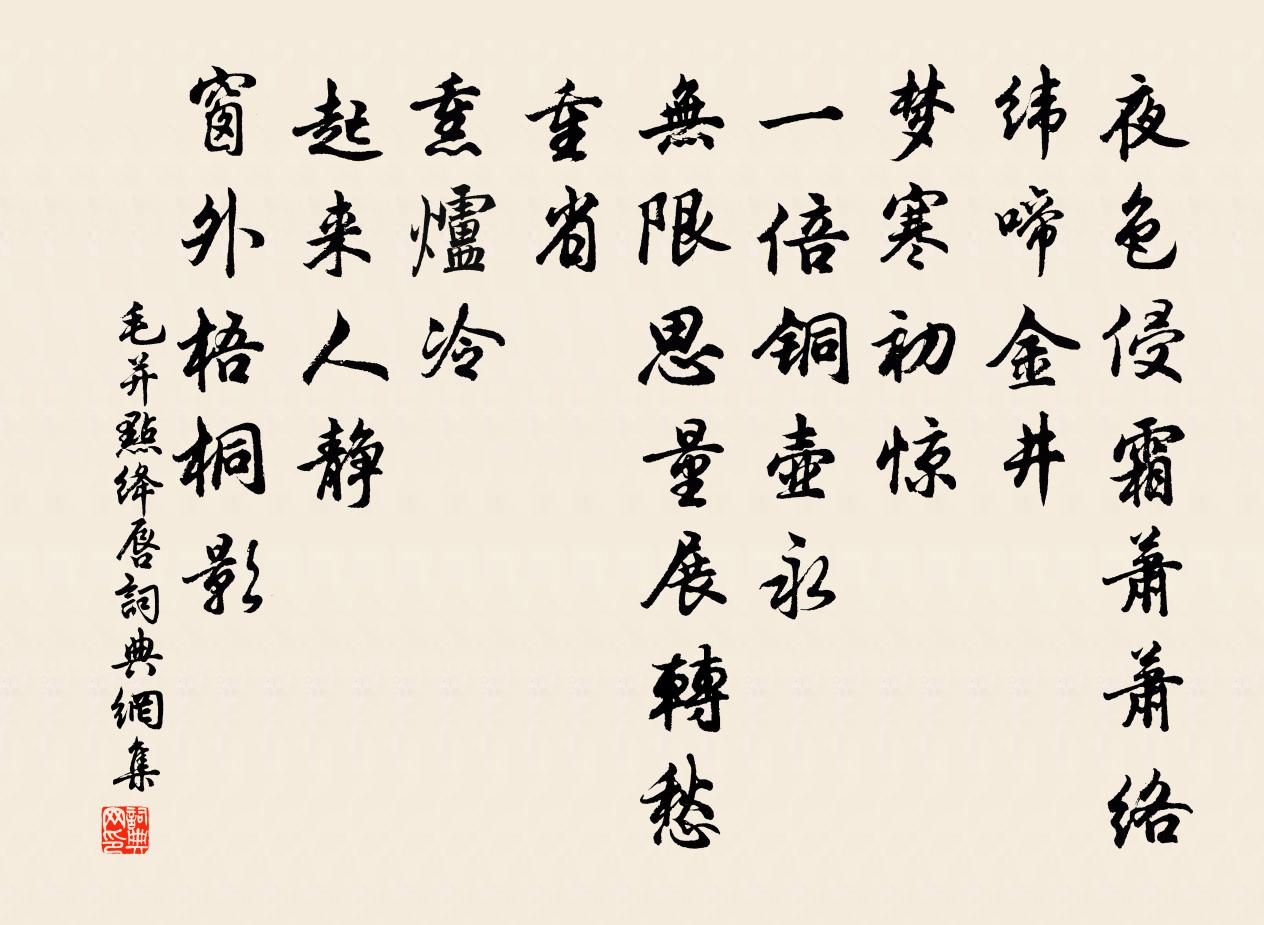 夜色侵霜萧萧络
纬啼金井
梦寒初惊
一倍铜壶永
無限思量展轉愁
重省
熏爐冷
起来人静
窗外梧桐影
毛并點绛唇詞典網集
詞典网印